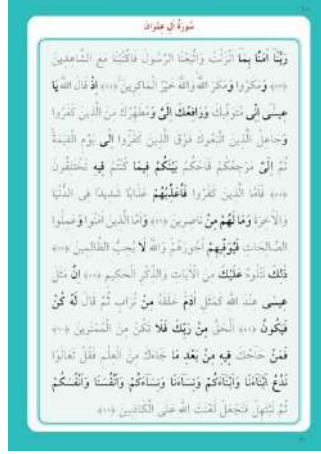 سُورَةُ آلِ عِمْرَانَ
رَبَّنَا اٰمَنَّا بِمَا اَنْزَلْتَ وَاتَّبَعْنَا الرَّسُولَ فَاكْتُبْنَا مَعَ الشَّاهِدِينَ
﴿٥٣﴾ وَمَكَرُوا وَمَكَرَ اللّٰهُ وَاللّٰهُ خَيْرُ الْمَاكِرِينَ ﴿٥٤﴾ اِذْ قَالَ اللّٰهُ يَا
عِيسٰى اِنِّى مُتَوَفِّيكَ وَرَافِعُكَ اِلَىَّ وَمُطَهِّرُكَ مِنَ الَّذِينَ كَفَرُوا
وَجَاعِلُ الَّذِينَ اتَّبَعُوكَ فَوْقَ الَّذِينَ كَفَرُوا اِلٰى يَوْمِ الْقِيٰمَةِ
ثُمَّ اِلَىَّ مَرْجِعُكُمْ فَاَحْكُمُ بَيْنَكُمْ فِيمَا كُنْتُمْ فِيهِ تَخْتَلِفُونَ
﴿٥٥﴾ فَاَمَّا الَّذِينَ كَفَرُوا فَاُعَذِّبُهُمْ عَذَابًا شَدِيدًا فِى الدُّنْيَا
وَالْاٰخِرَةِ وَمَا لَهُمْ مِنْ نَاصِرِينَ ﴿٥٦﴾ وَاَمَّا الَّذِينَ اٰمَنُوا وَعَمِلُوا
الصَّالِحَاتِ فَيُوَفِّيهِمْ اُجُورَهُمْ وَاللّٰهُ لَا يُحِبُّ الظَّالِمِينَ ﴿٥٧﴾
ذٰلِكَ نَتْلُوهُ عَلَيْكَ مِنَ الْاٰيَاتِ وَالذِّكْرِ الْحَكِيمِ ﴿٥٨﴾ اِنَّ مَثَلَ
عِيسٰى عِنْدَ اللّٰهِ كَمَثَلِ اٰدَمَ خَلَقَهُ مِنْ تُرَابٍ ثُمَّ قَالَ لَهُ كُنْ
فَيَكُونُ ﴿٥٩﴾ اَلْحَقُّ مِنْ رَبِّكَ فَلَا تَكُنْ مِنَ الْمُمْتَرِينَ ﴿٦٠﴾
فَمَنْ حَاجَّكَ فِيهِ مِنْ بَعْدِ مَا جَاءَكَ مِنَ الْعِلْمِ فَقُلْ تَعَالَوْا
نَدْعُ اَبْنَاءَنَا وَاَبْنَاءَكُمْ وَنِسَاءَنَا وَنِسَاءَكُمْ وَاَنْفُسَنَا وَاَنْفُسَكُمْ
ثُمَّ نَبْتَهِلْ فَنَجْعَلْ لَعْنَتَ اللّٰهِ عَلَى الْكَاذِبِينَ ﴿٦١﴾